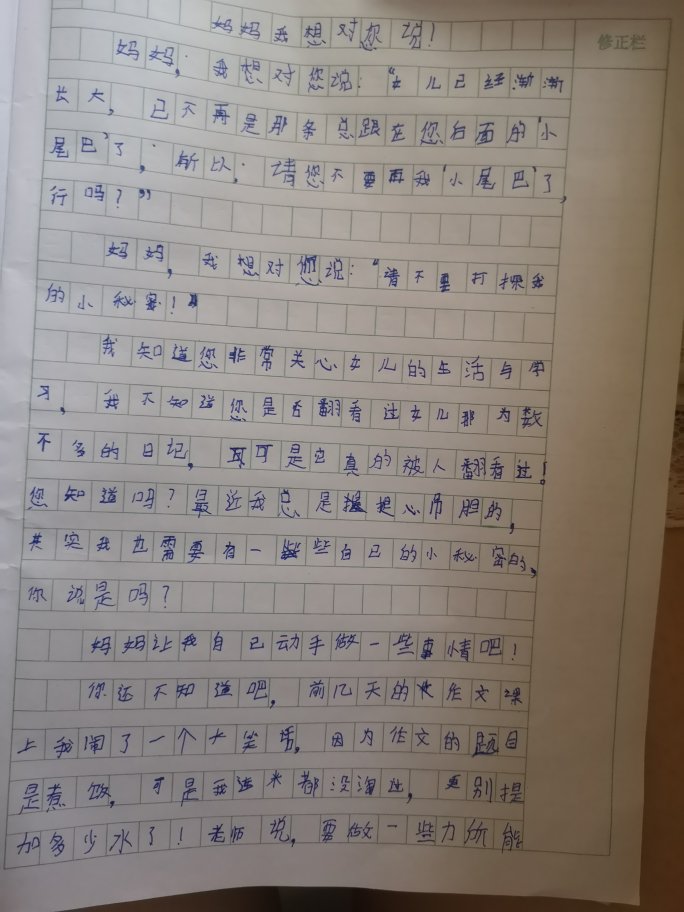 妈妈我想对您说！
修正栏
妈妈，我想对您说：“女儿已经渐渐
长大，已不再是那条总跟在您后面的‘小
尾巴’了，所以，请您不要再我‘小尾巴’了，
行吗？”
妈妈，我想对您说：“请不要打探我
的小秘密！”
我知道您非常关心女儿的生活与学
习，我不知道您是否翻看过女儿那为数
不多的日记，可是它真的被人翻看过！
您知道吗？最近我总是提心吊胆的，
其实我也需要有一些自己的小秘密的，
你说是吗？
妈妈让我自己动手做一些事情吧！
你还不知道吧，前几天的作文课
上我闹了一个大笑话，因为作文的题目
是煮饭，可是我连米都没淘过，更别提
加多少水了！老师说，要做一些力所能